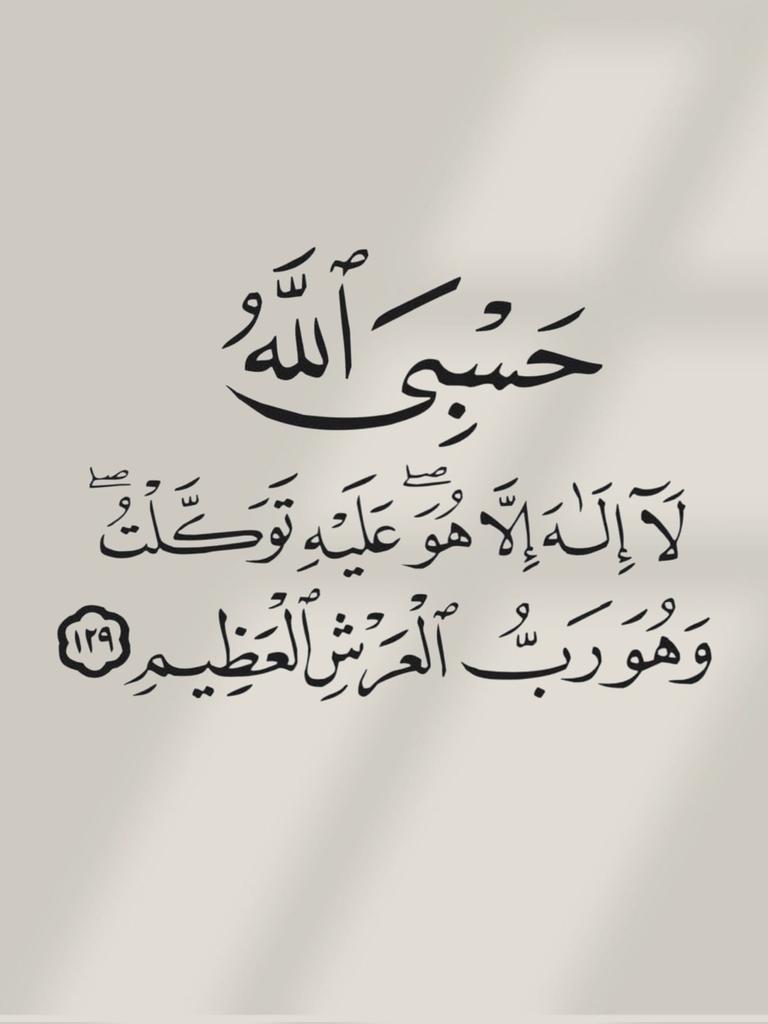 حَسْبِىَ ٱللَّهُ
لَآ إِلَٰهَ إِلَّا هُوَۖ عَلَيْهِ تَوَكَّلْتُۖ
وَهُوَ رَبُّ ٱلْعَرْشِ ٱلْعَظِيمِ ١٢٩